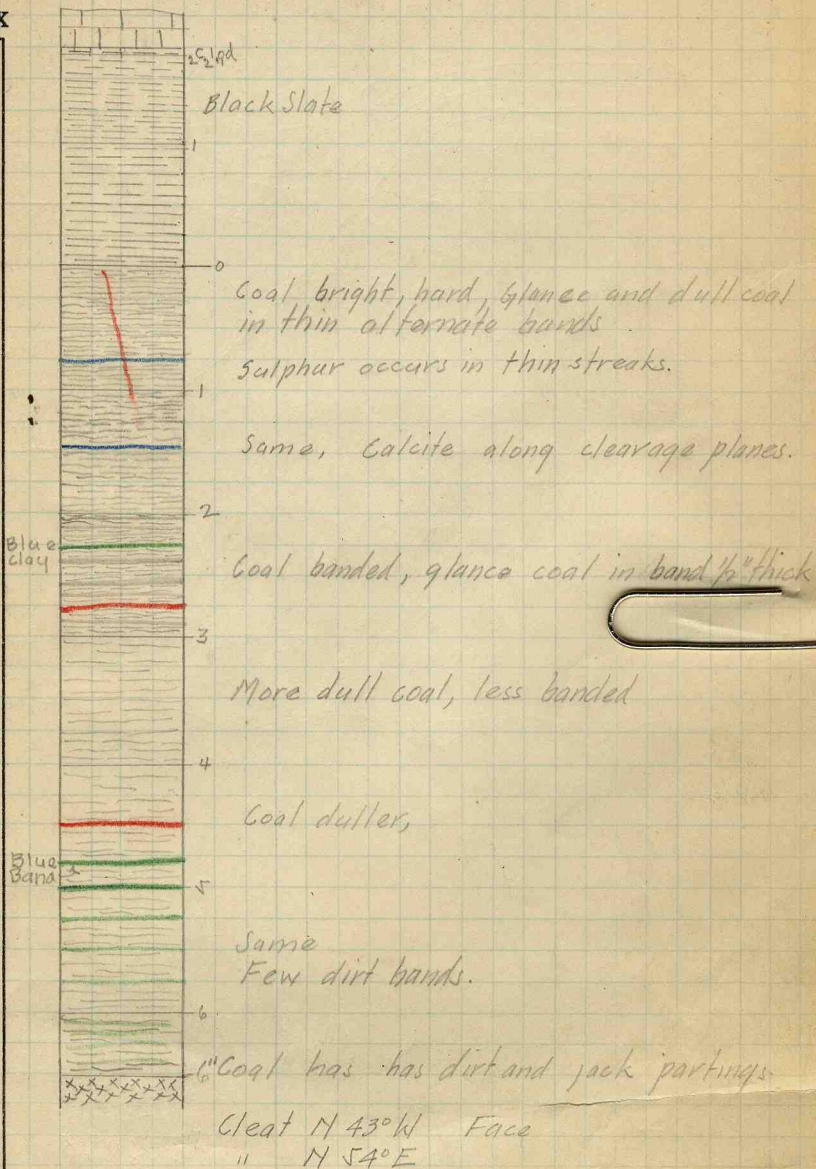 x
Black Slate
1
0
Coal bright, hard, Glance and dull coal
in thin alternate bands
Sulphur occurs in thin streaks.
1
Same, Calcite along cleavage planes.
2
Blue
clay
Coal banded, glance coal in band 1/2" thick
3
More dull coal, less banded
4
Coal duller,
Blue
Band
5
Same
Few dirt bands.
6
6" Coal has has dirt and jack partings
Cleat N 43° W Face
" N 54° E